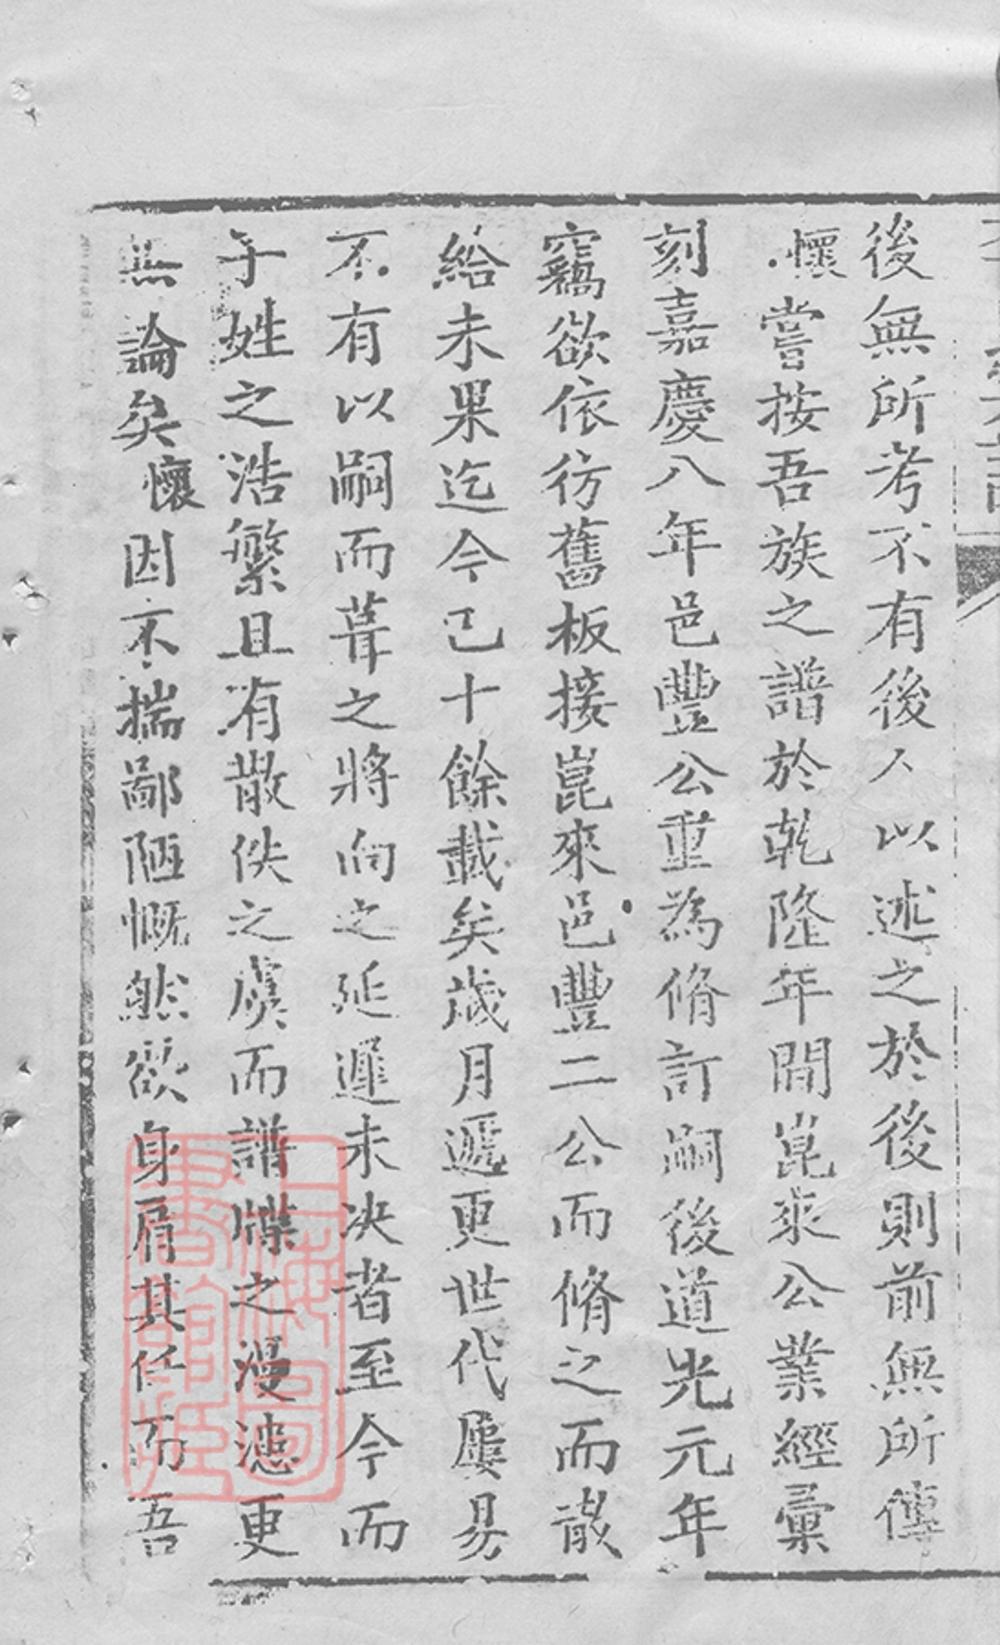 後無所考不有後人以述之於後則前無所傳
懷嘗按吾族之譜於乾隆年間崑來公業經彙
刻嘉慶八年邑豐公重為脩訂嗣後道光元年
竊欲依彷舊板接崑來邑豐二公而脩之而歲
給未果迄今已十餘載矣歲月遞更世代屢易
不有以嗣而葺之將向之延遲未决者至今而
子姓之浩繁且有散佚之虞而譜牒之漫漶更
無論矣懷因不揣鄙陋慨然欲身肩其任而吾
上海圖書館藏